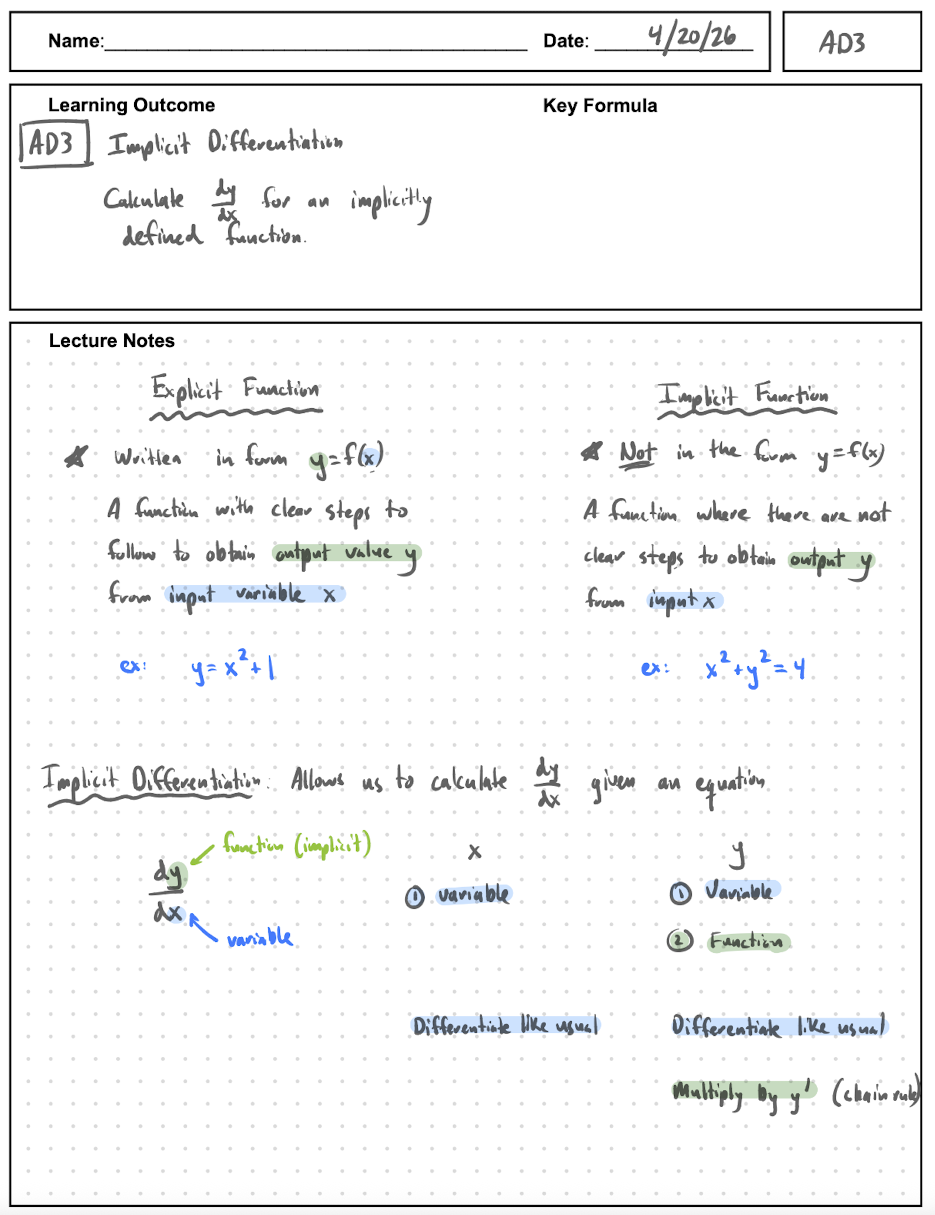 Name: Date: 4/20/26 AD3
Learning Outcome Key Formula
AD3 Implicit Differentiation
Calculate dy/dx for an implicitly
defined function.
Lecture Notes
Explicit Function
Written in form y=f(x)
A function with clear steps to
follow to obtain output value y
from input variable x
ex: y = x²+1
Implicit Function
Not in the form y=f(x)
A function where there are not
clear steps to obtain output y
from input x
ex: x²+y²=4
Implicit Differentiation: Allows us to calculate dy/dx given an equation
dy/dx
function (implicit)
variable
x
① variable
Differentiate like usual
y
① Variable
② Function
Differentiate like usual
Multiply by y' (chain rule)